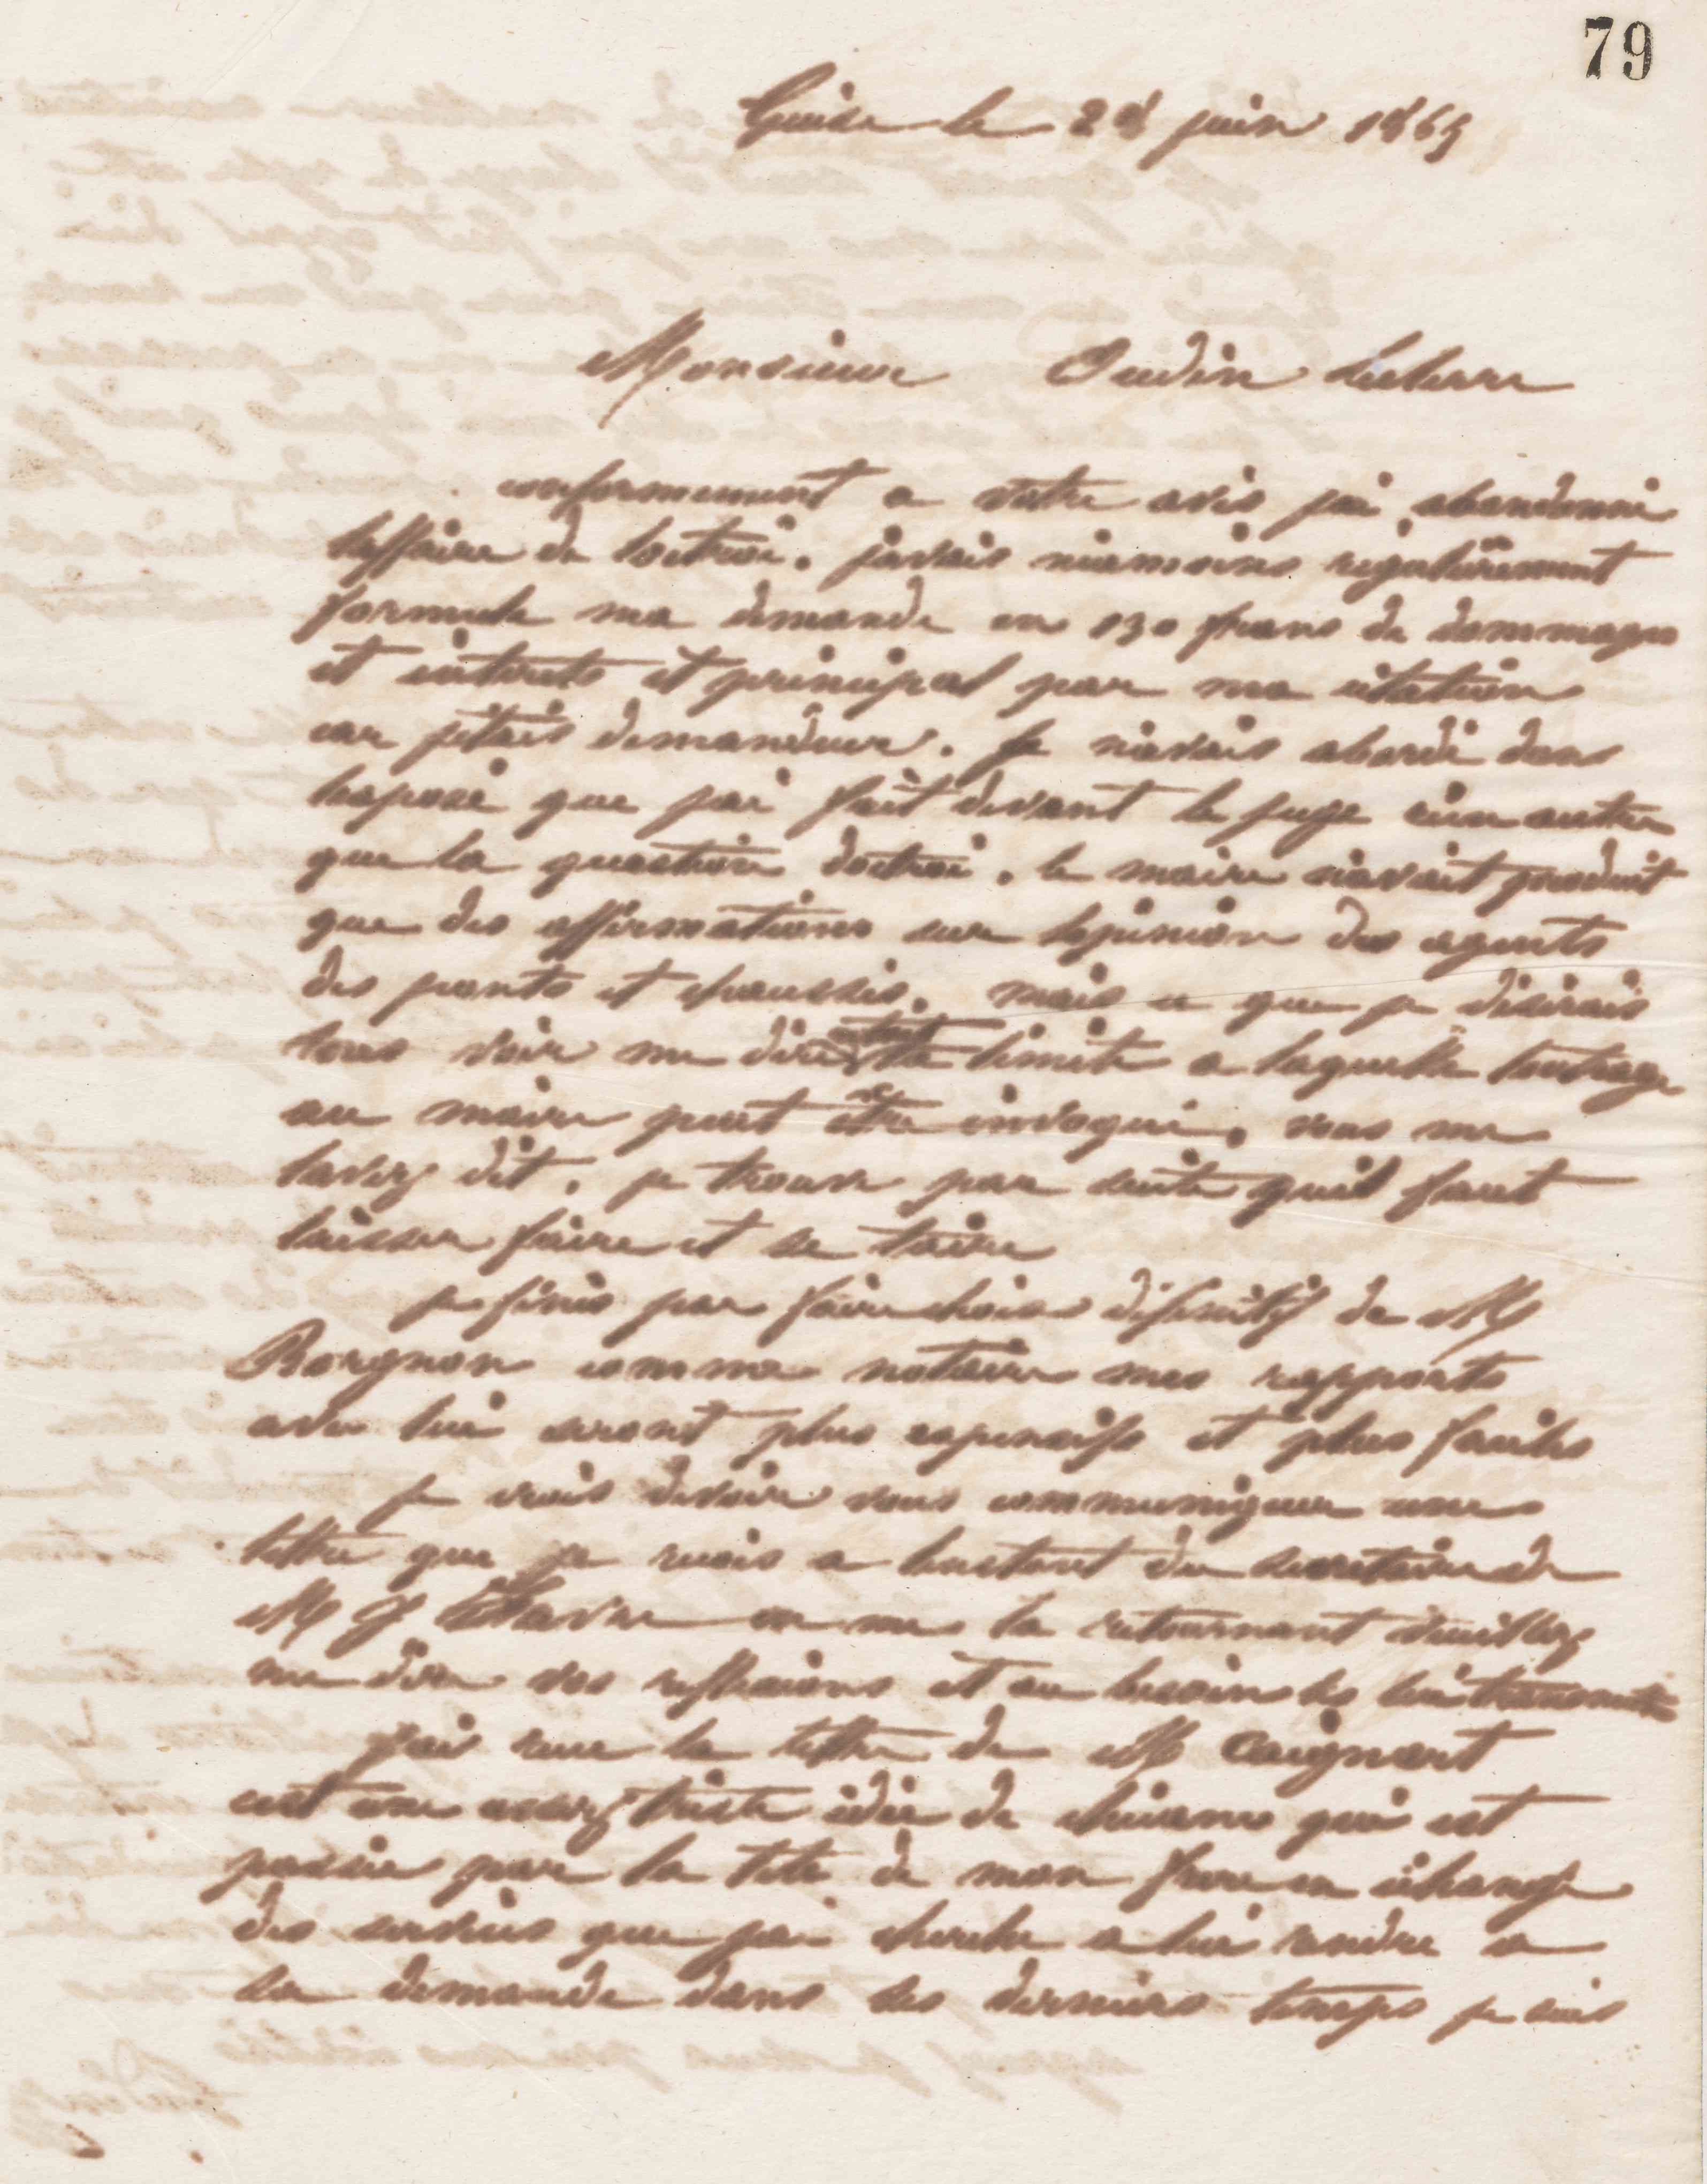 79
Guise le 28 juin 1865
Monsieur Oudin Leclerre
conformement a votre avis jai abandonné
laffaire de loctroi. javais néanmoins regulièrement
formulé ma demande en 130 francs de dommages
et intérêts et principal par ma citation
car jétais demandeur. Je navais abordé dans
lexposé que jai fait devant le juge rien autre
que la question doctroi. le maire navait produit
que des affirmations sur lopinion des agents
des ponts et chaussées. mais ce que je désirais
vous voir me dire était la limite a laquelle loutrage
au maire peut être invoqué. vous me
lavez dit. je trouve par suite quil faut
laisser faire et se taire
je finis par faire choix définitif de M
Borgnon comme notaire mes rapports
avec lui seront plus expansifs et plus faciles
je crois devoir vous communiquer une
lettre que je recois a linstant du secretaire de
M J Favre en me la retournant veuillez
me dire vos reflexions et au besoin les lui transmettre
jai recu la lettre de M Caignart
cest une assez triste idée de chicane qui est
passée par la tete de mon frere en échange
des services que jai cherché a lui rendre a
sa demande dans ces derniers temps je suis